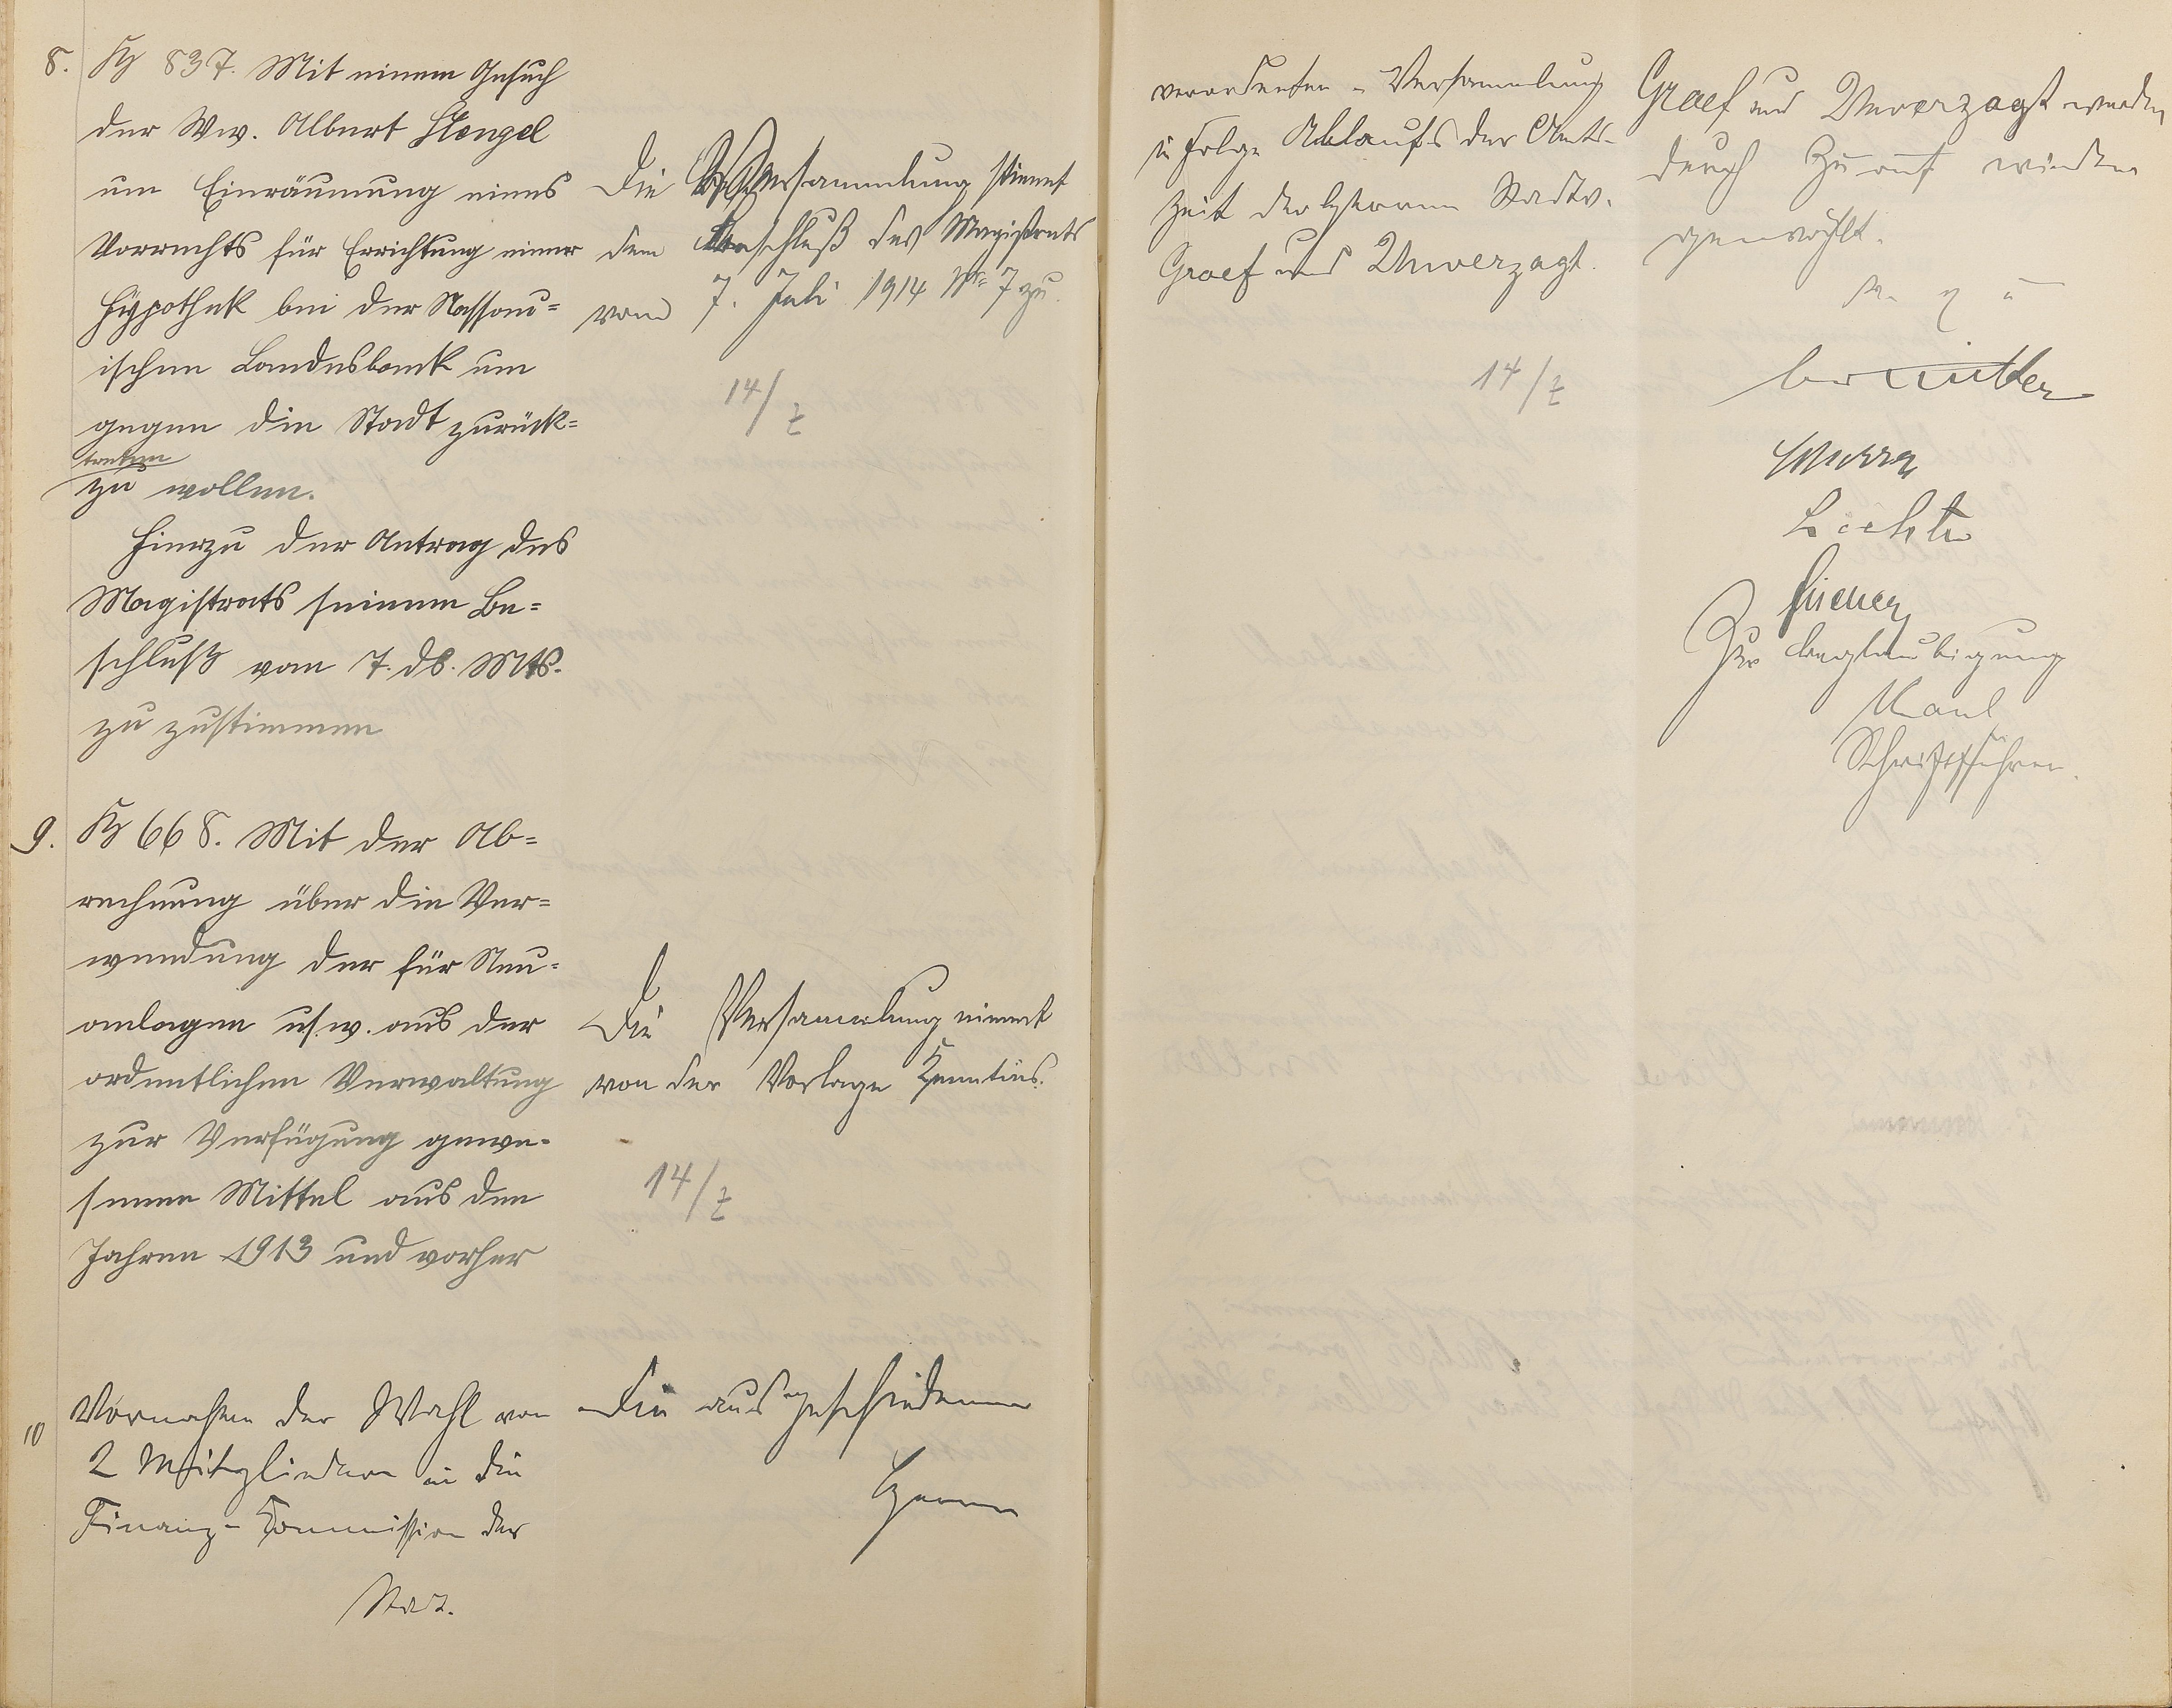 8. Kg 837. Mit einem Gesuch
der Ww. Albert Stengel
um Einräumung eines
Vorrechts für Errichtung einer
Hypothek bei der Nassau=
ischen Landesbank um
gegen die Stadt zurück=
treten
zu wollen.
Hierzu der Antrag des
Magistrats seinem Be=
schluß vom 7. ds. Mts.
zu zustimmen
Die Versammlung stimmt
dem Beschluß des Magistrats
vom 7. Juli 1914 No 7 zu.
14/7
9. Kg 668. Mit der Ab=
rechnung über die Ver=
wendung der für Neu=
anlagen usw. aus der
ordentlichen Verwaltung
zur Verfügung gewe-
senen Mittel aus den
Jahren 1913 und vorher
Die Versammlung nimmt
von der Vorlage Kenntnis.
14/7
10 Vornahme der Wahl von
2 Mitgliedern in die
Finanz-Kommission der
Die ausgeschiedenen
Herren
verordneten-Versammlung
in Folge Ablaufs der Amts-
zeit der Herren Stadtv.
Graef und Unverzagt.
14/7
Graef und Unverzagt werden
durch Zuruf wieder
gewählt.
v. g. u.
Zur Beglaubigung
Kaul
Schriftführer.